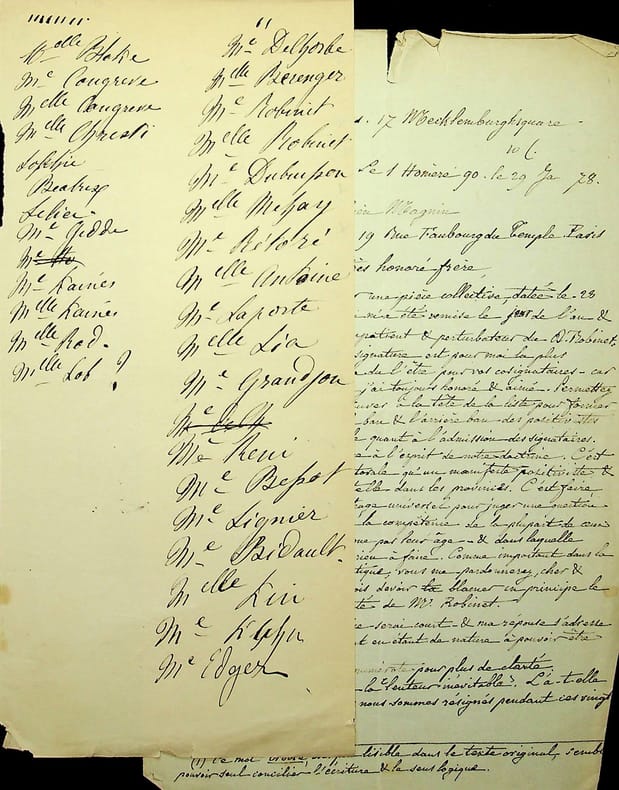 Melle Blake
Me Congreve
Melle Congreve
Melle Christi
Sophie
Beatrix
Me Geddes
Me Kaines
Melle Kaines
Melle Rod.
Melle Lob ?
Me Delhorbe
Melle Berenger
Me Robinet
Melle Robinet
Me Dubuisson
Melle Metzay
Me Retoré
Melle Antoine
Me Laporte
Melle Lia
Me Grandjon
Me Reni
Me Bepot
Me Lignier
Me Bidault
Melle Lin
Me Kuhn
Me Edger
17 Mecklemburghsquare
Le 1 Homère 90. le 29 Ja 78.
Magnin
19 Rue Faubourg du Temple. Paris
honoré frère,
une pièce collective, datée le 28
m'a été remise le jour de l'an &
& perturbateur du Dr Robinet.
signature est pour moi la plus
de l'être pour vos cosignataires - car
j'ai toujours honoré & aimé. Permettez
à la tête de la liste pour former
ban & l'arrière ban des positivistes
quant à l'admission des signataires.
à l'esprit de notre doctrine. C'est
qu'un manifeste positiviste &
dans les provinces. C'est faire
universel pour juger une question
la compétence de la plupart de ceux
par leur âge - & dans laquelle
rien à faire. Comme important dans la
vous me pardonnerez, cher &
devoir blamer en principe le
de Mr. Robinet.
serai court - & ma réponse s'adresse
en étant de nature à pouvoir être
pour plus de clarté.
la "lenteur inévitable". L'a-t-elle
nous sommes résignés pendant ces vingt
(1) Le mot lisible dans le texte original, semble
pouvoir seul concilier l'écriture & le sens logique.